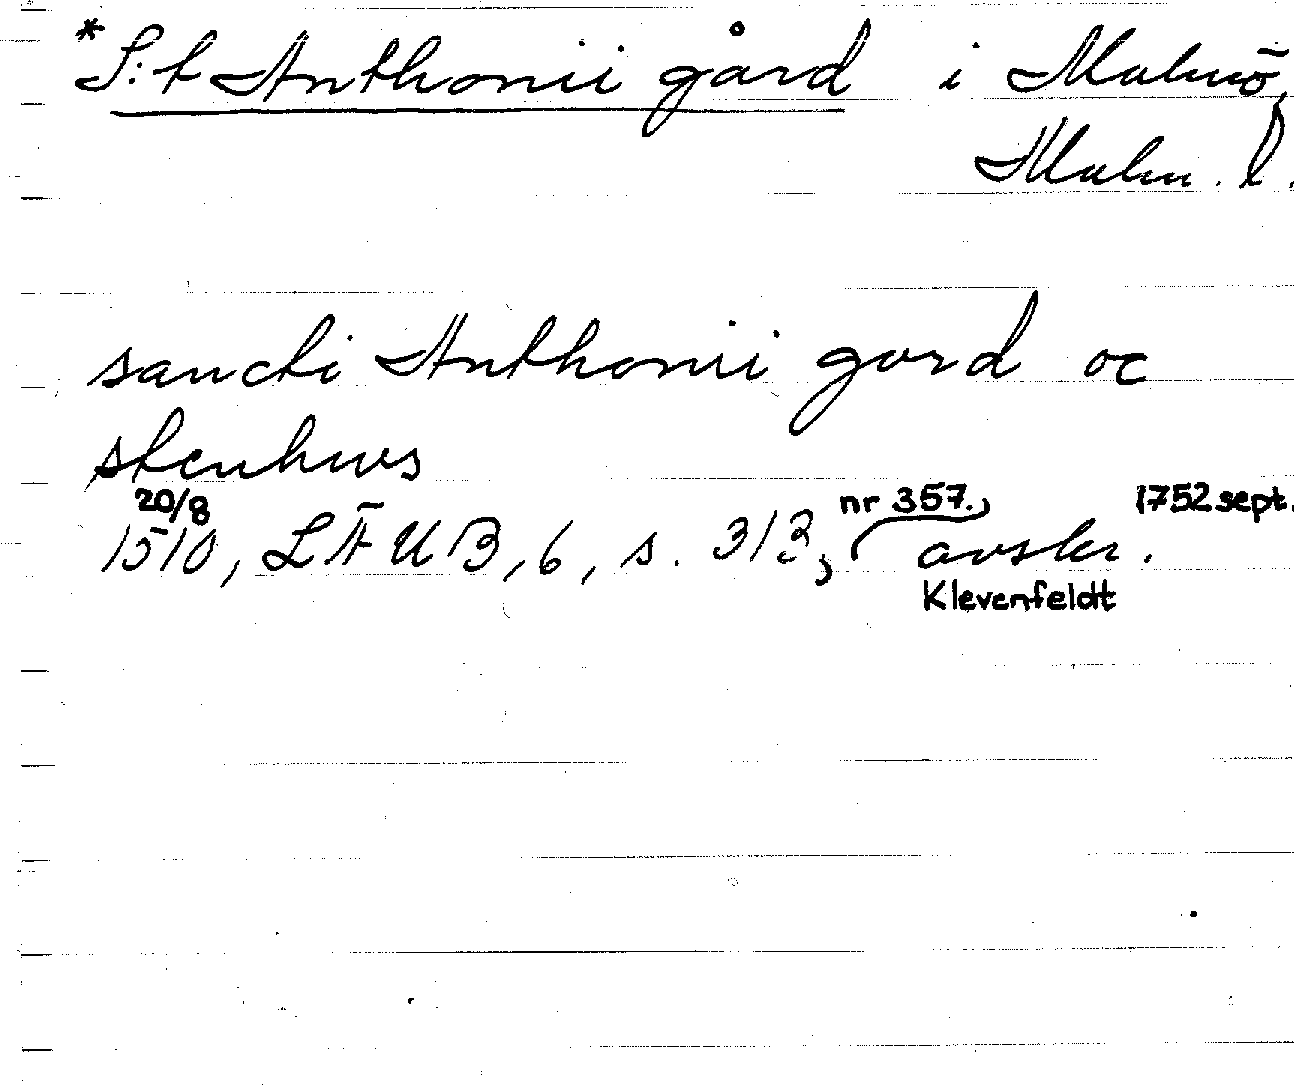 *S:t Anthonii gård i Malmö,
Malm. l.
sancti Anthonii gord oc
stenhws
20/8 nr 357. 1752 sept.
1510, LÄUB, 6, s. 313, avskr.
Klevenfeldt